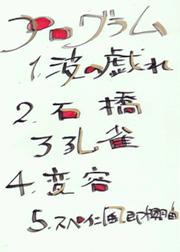 プログラム
1.波の戯れ
2.石橋
3孔雀
4.変容
5.スペイン風即興曲